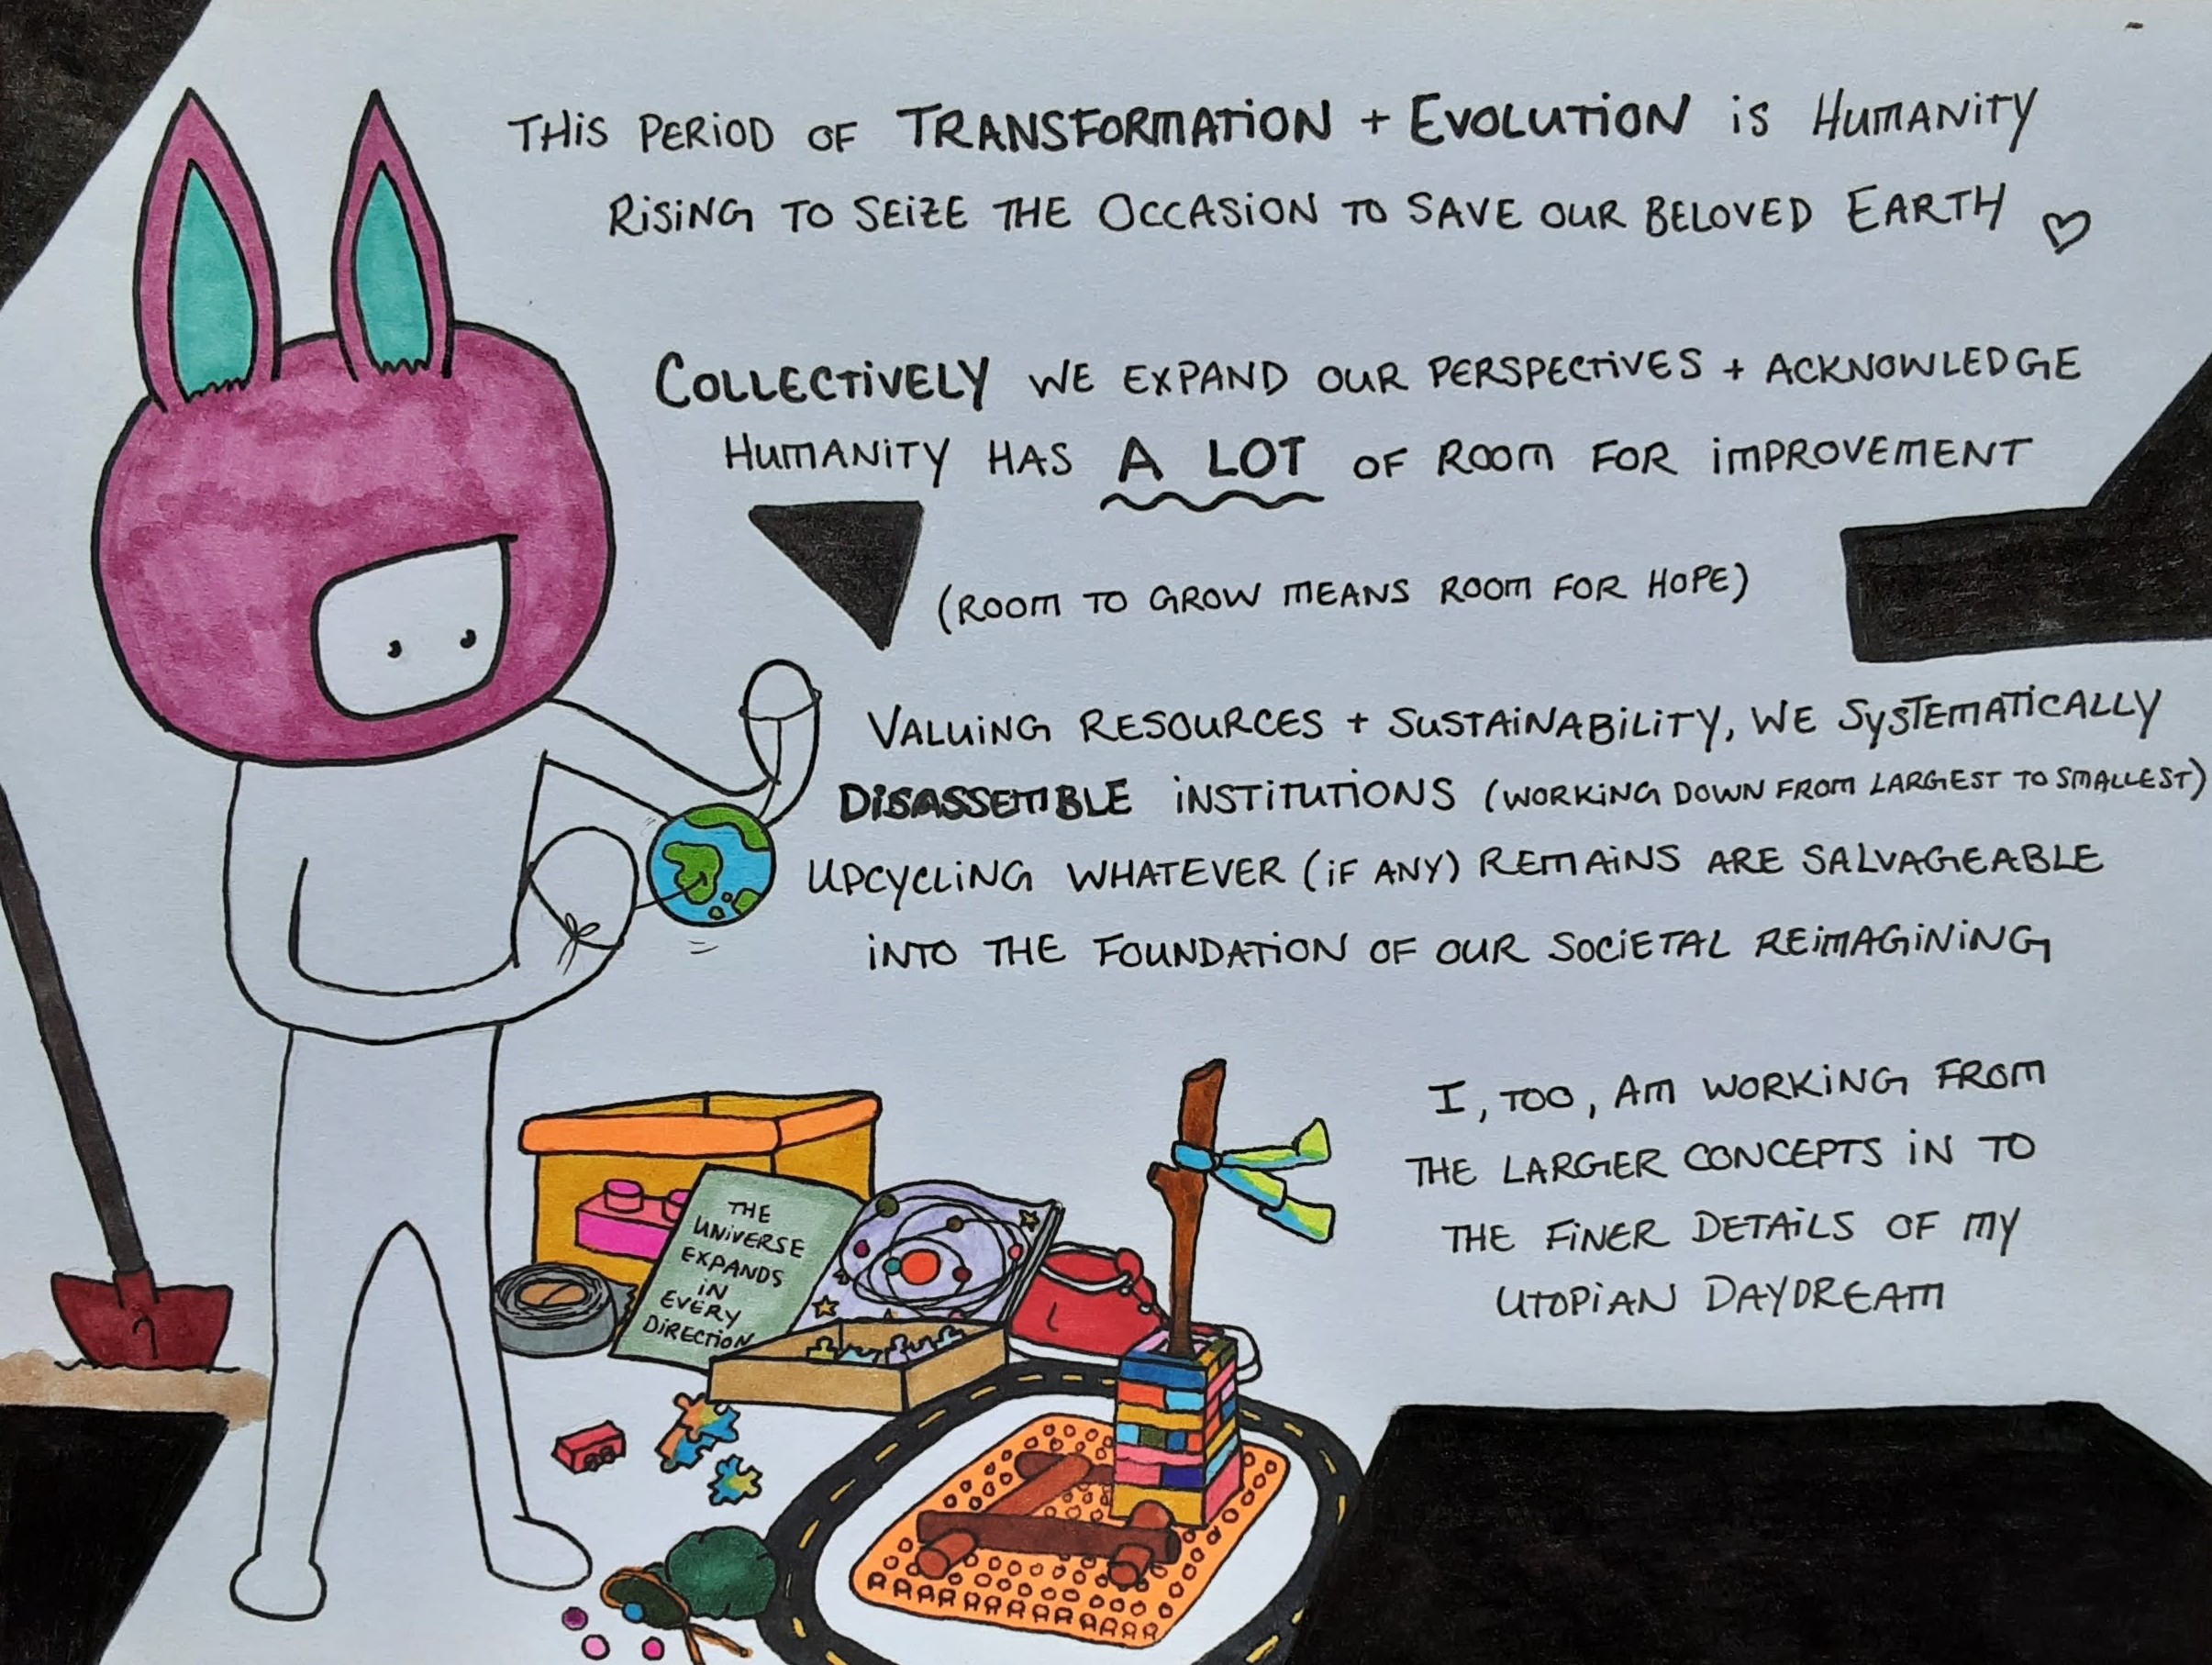 THIS PERIOD OF TRANSFORMATION + EVOLUTION IS HUMANITY
RISING TO SEIZE THE OCCASION TO SAVE OUR BELOVED EARTH ♡
COLLECTIVELY WE EXPAND OUR PERSPECTIVES + ACKNOWLEDGE
HUMANITY HAS A LOT OF ROOM FOR IMPROVEMENT
(ROOM TO GROW MEANS ROOM FOR HOPE)
VALUING RESOURCES + SUSTAINABILITY, WE SYSTEMATICALLY
DISASSEMBLE INSTITUTIONS (WORKING DOWN FROM LARGEST TO SMALLEST)
UPCYCLING WHATEVER (IF ANY) REMAINS ARE SALVAGEABLE
INTO THE FOUNDATION OF OUR SOCIETAL REIMAGINING
I, TOO, AM WORKING FROM
THE LARGER CONCEPTS IN TO
THE FINER DETAILS OF MY
UTOPIAN DAYDREAM
THE
UNIVERSE
EXPANDS
IN
EVERY
DIRECTION